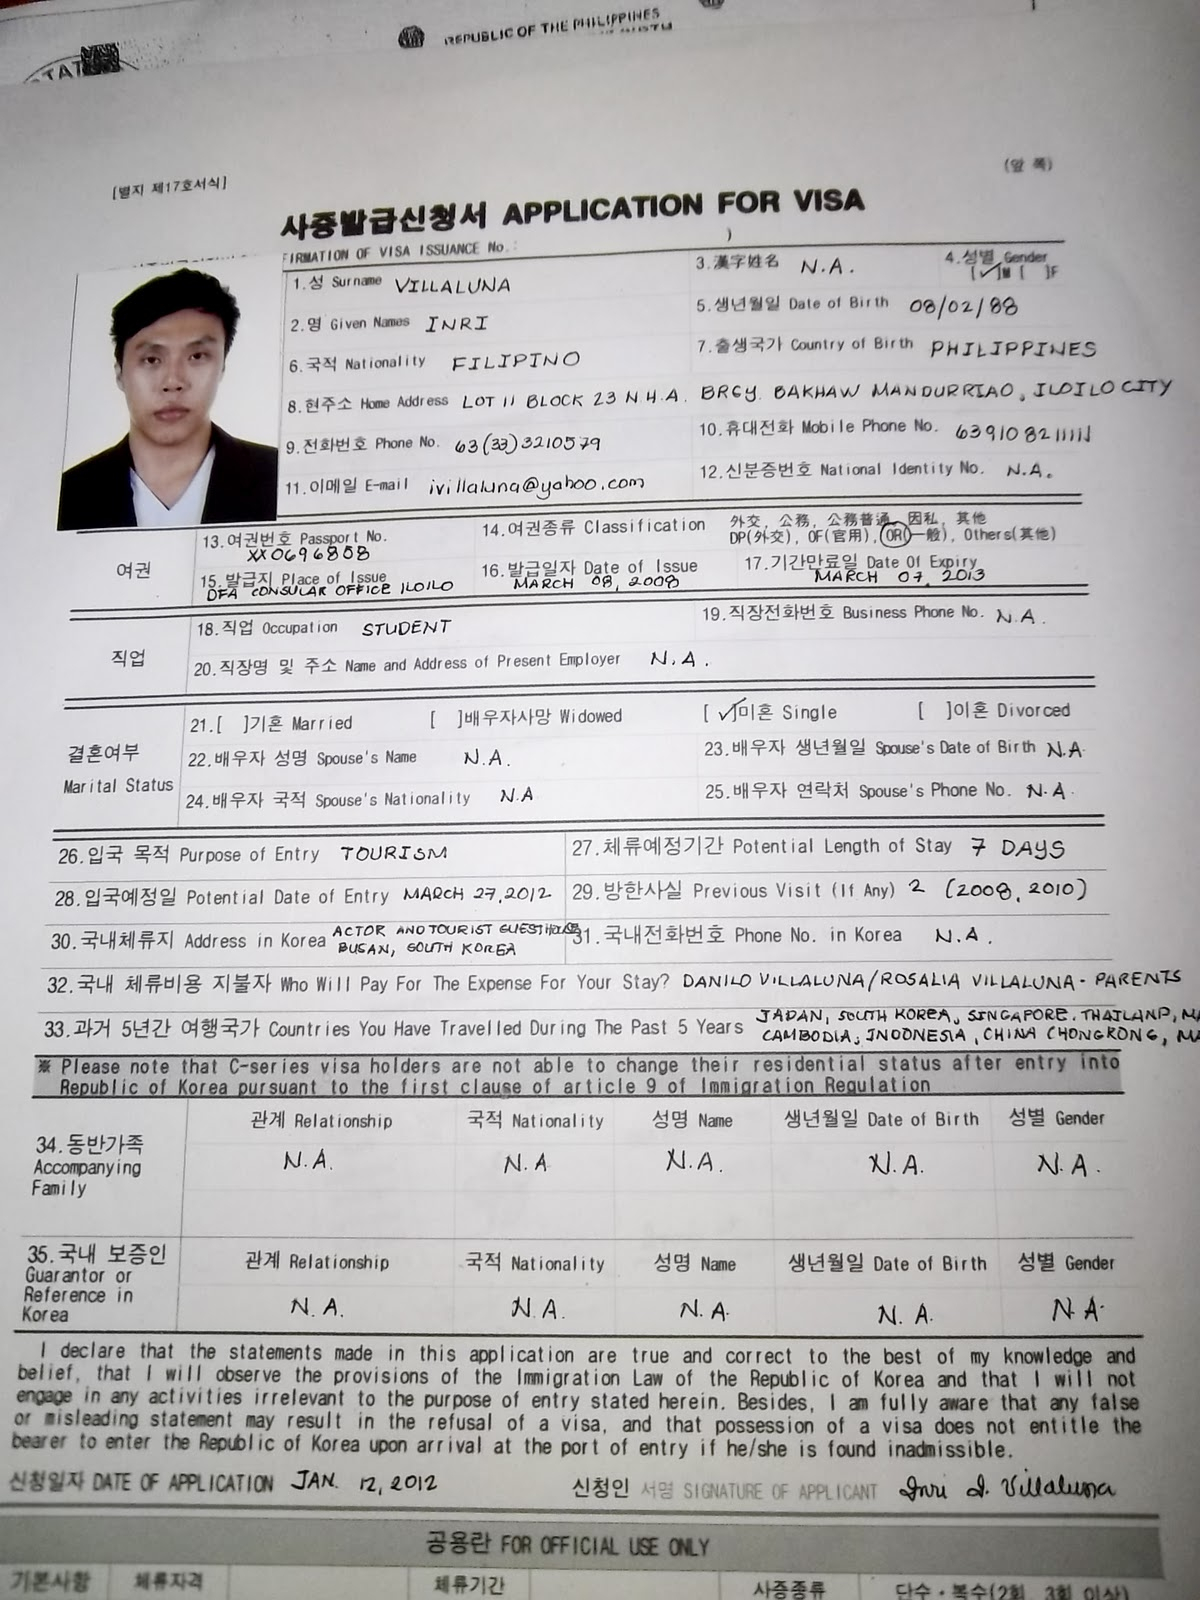 REPUBLIC OF THE PHILIPPINES
[별지 제17호서식]
(앞 쪽)
사증발급신청서 APPLICATION FOR VISA
FIRMATION OF VISA ISSUANCE No. : )
1.성 Surname VILLALUNA
3.漢字姓名 N.A.
4.성별 Gender
[✓]M [ ]F
2.명 Given Names INRI
5.생년월일 Date of Birth 08/02/88
6.국적 Nationality FILIPINO
7.출생국가 Country of Birth PHILIPPINES
8.현주소 Home Address LOT 11 BLOCK 23 N.H.A. BRGY. BAKHAW MANDURRIAO, ILOILO CITY
9.전화번호 Phone No. 63(33)3210579
10.휴대전화 Mobile Phone No. 639108211111
11.이메일 E-mail ivillaluna@yahoo.com
12.신분증번호 National Identity No. N.A.
여권
13.여권번호 Passport No.
XX0696808
14.여권종류 Classification
外交, 公務, 公務普通, 因私, 其他
DP(外交), OF(官用), OR(一般), Others(其他)
15.발급지 Place of Issue
DFA CONSULAR OFFICE ILOILO
16.발급일자 Date of Issue
MARCH 08, 2008
17.기간만료일 Date Of Expiry
MARCH 07, 2013
직업
18.직업 Occupation STUDENT
19.직장전화번호 Business Phone No. N.A.
20.직장명 및 주소 Name and Address of Present Employer N.A.
결혼여부
Marital Status
21.[ ]기혼 Married [ ]배우자사망 Widowed [✓]미혼 Single [ ]이혼 Divorced
22.배우자 성명 Spouse's Name N.A.
23.배우자 생년월일 Spouse's Date of Birth N.A.
24.배우자 국적 Spouse's Nationality N.A
25.배우자 연락처 Spouse's Phone No. N.A.
26.입국 목적 Purpose of Entry TOURISM
27.체류예정기간 Potential Length of Stay 7 DAYS
28.입국예정일 Potential Date of Entry MARCH 27, 2012
29.방한사실 Previous Visit (If Any) 2 (2008, 2010)
30.국내체류지 Address in Korea ACTOR AND TOURIST GUESTHOUSE
BUSAN, SOUTH KOREA
31.국내전화번호 Phone No. in Korea N.A.
32.국내 체류비용 지불자 Who Will Pay For The Expense For Your Stay? DANILO VILLALUNA/ROSALIA VILLALUNA - PARENTS
33.과거 5년간 여행국가 Countries You Have Travelled During The Past 5 Years JAPAN, SOUTH KOREA, SINGAPORE, THAILAND, MA
CAMBODIA, INDONESIA, CHINA CHONGKONG, MA
※ Please note that C-series visa holders are not able to change their residential status after entry into
Republic of Korea pursuant to the first clause of article 9 of Immigration Regulation
34.동반가족
Accompanying
Family
관계 Relationship 국적 Nationality 성명 Name 생년월일 Date of Birth 성별 Gender
N.A. N.A N.A. N.A. N.A.
35.국내 보증인
Guarantor or
Reference in
Korea
관계 Relationship 국적 Nationality 성명 Name 생년월일 Date of Birth 성별 Gender
N.A. N.A. N.A. N.A. N.A.
I declare that the statements made in this application are true and correct to the best of my knowledge and
belief, that I will observe the provisions of the Immigration Law of the Republic of Korea and that I will not
engage in any activities irrelevant to the purpose of entry stated herein. Besides, I am fully aware that any false
or misleading statement may result in the refusal of a visa, and that possession of a visa does not entitle the
bearer to enter the Republic of Korea upon arrival at the port of entry if he/she is found inadmissible.
신청일자 DATE OF APPLICATION JAN. 12, 2012
신청인 서명 SIGNATURE OF APPLICANT Inri I. Villaluna
공용란 FOR OFFICIAL USE ONLY
기본사항 체류자격 체류기간 사증종류 단수・복수(2회, 3회 이상)